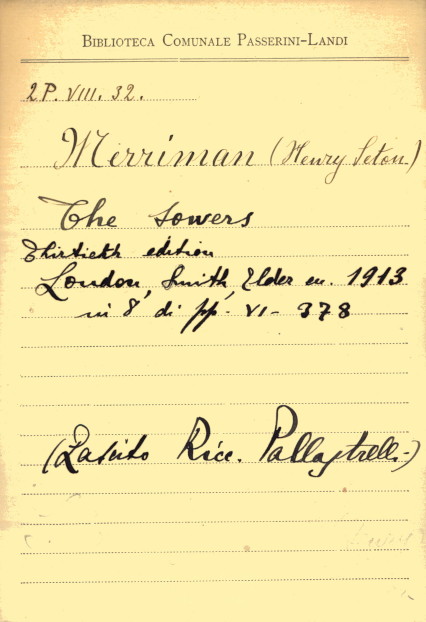 BIBLIOTECA COMUNALE PASSERINI-LANDI
2P. VIII. 32.
Merriman (Henry Seton)
The sowers
Thirtieth edition
London, Smith, Elder 1913
in 8° di pp. VI-378
(Lascito Ricc. Pallastrelli)